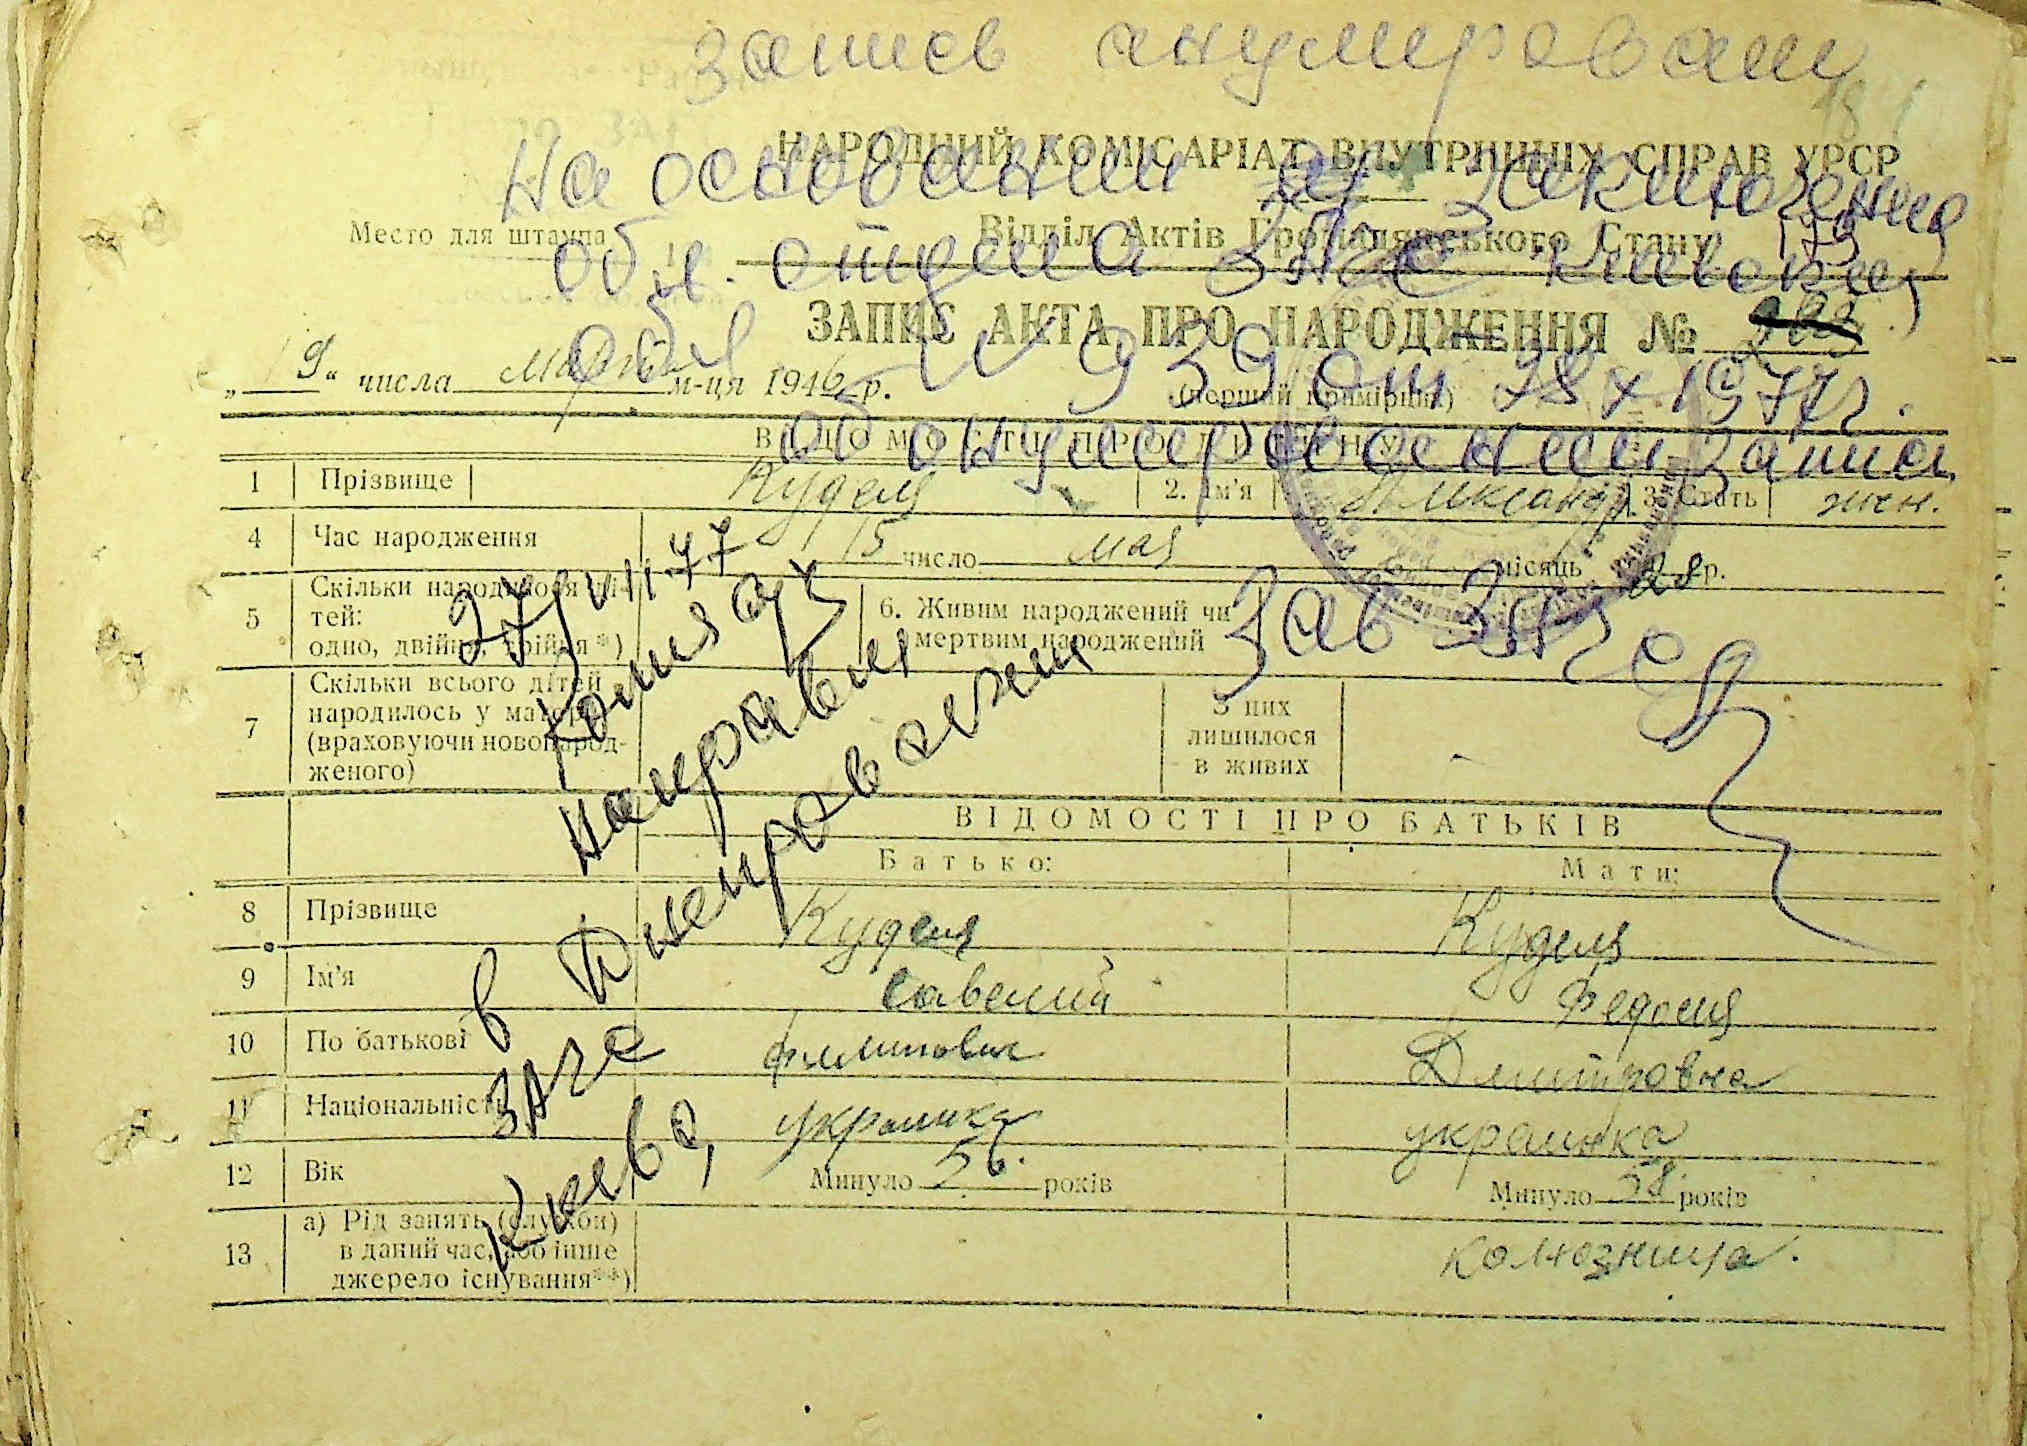 запись анулирован
НАРОДНИЙ КОМІСАРІАТ ВНУТРІШНІХ СПРАВ УРСР
На основании заключения
Место для штампа
Відділ Актів Громадянського Стану
обл. отдела ЗАГС Киевской
обл
ЗАПИС АКТА ПРО НАРОДЖЕННЯ №
„19“ числа марта м-ця 1946 р.
(перший примірник)
№ 939 от 28 X 1977 г.
ВІДОМОСТІ ПРО ДИТИНУ
об анулировании записи
1 Прізвище Куделя 2. Ім'я Александр. 3. Стать жен.
4 Час народження 15 число мая місяць 28 р.
5 Скільки народилося ді-
тей:
одно, двійня, трійня*)
6. Живим народжений чи
мертвим народжений
Зав ЗАГС
7 Скільки всього дітей
народилось у матері
(враховуючи новонарод-
женого)
З них
лишилося
в живих
27/VIII.77
Копия а/з
направлен
в Днепровский
ЗАГС
Киева
ВІДОМОСТІ ПРО БАТЬКІВ
Батько: Мати:
8 Прізвище Куделя Куделя
9 Ім'я Савелий Федосия
10 По батькові Филипович Дмитровна
11 Національність украинка украинка
12 Вік Минуло 56. років Минуло 58. років
13 а) Рід занять (служби)
в даний час, або інше
джерело існування**)
колхозница.